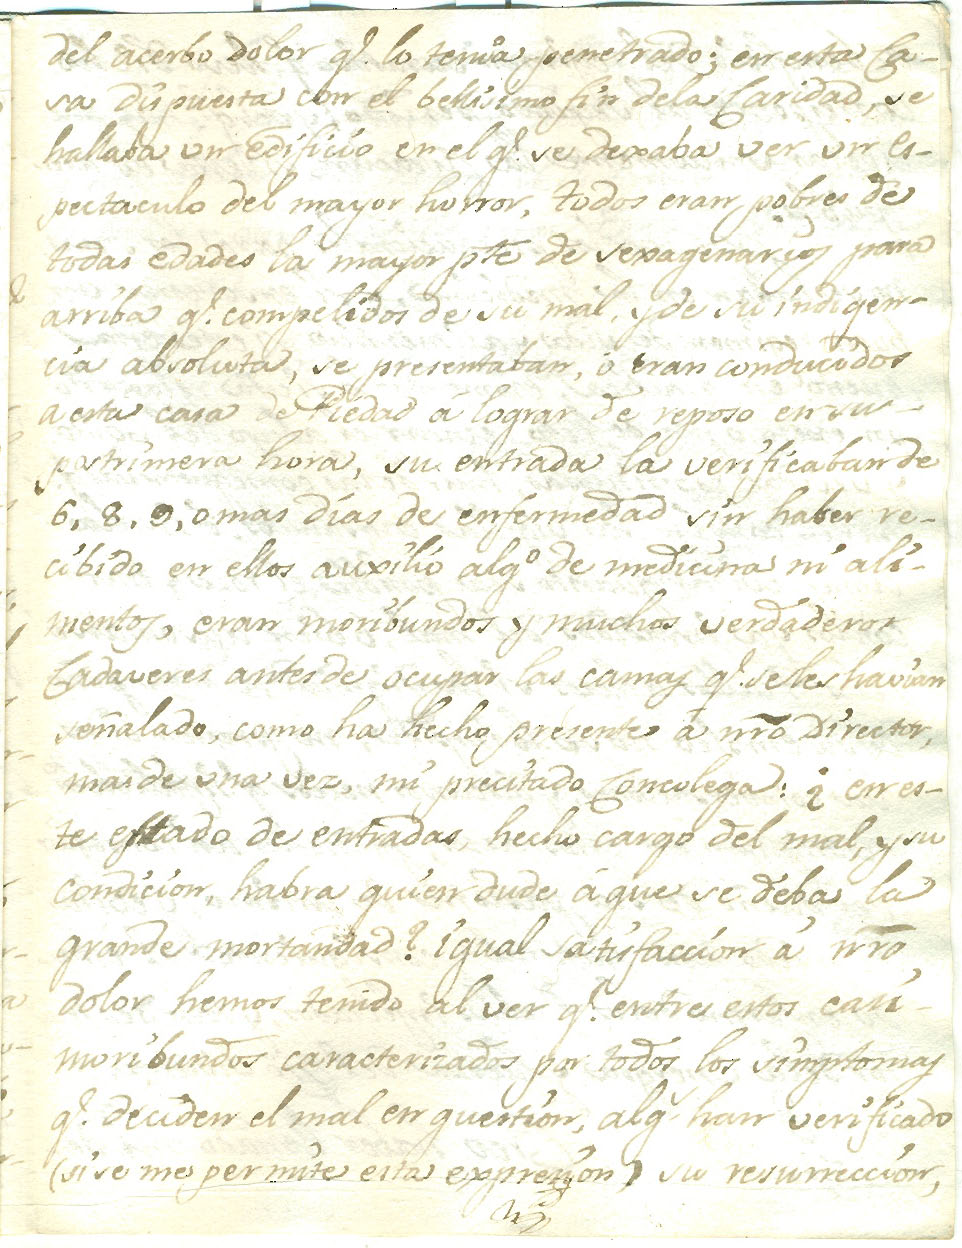 del acerbo dolor q.^e lo tenia penetrado; en esta Ca-
sa dispuesta con el bellisimo fin dela Caridad, se
hallaba un edificio en el q.^e se dexaba ver un Es-
pectaculo del mayor horror, todos eran pobres de
todas edades la mayor p.te de sexagenarios para
arriba q.^e compelidos de su mal, y de su indigen-
cia absoluta, se presentaban, o eran conducidos
a esta casa de Piedad á lograr de reposo en su
postrimera hora, su entrada la verificaban de
6, 8, 9, o mas dias de enfermedad sin haber re-
cibido en ellos auxilio alg.º de medicina ni ali-
mentos, eran moribundos y muchos verdaderos
Cadaveres antes de ocupar las camas q.^e seles havian
señalado, como ha hecho presente á nrõ Director,
mas de una vez, mi precitado Concolega: ¿ en es-
te estado de entradas, hecho cargo del mal, y su
condicion, habra quien dude á que se deba la
grande mortandad? igual satisfaccion á nrõ
dolor hemos tenido al ver q.^e entre estos casi
moribundos caracterizados por todos los simptomas
q.^e deciden el mal en question, alg.^s han verificado
(si se me permite esta exprezion) su resurreccion,